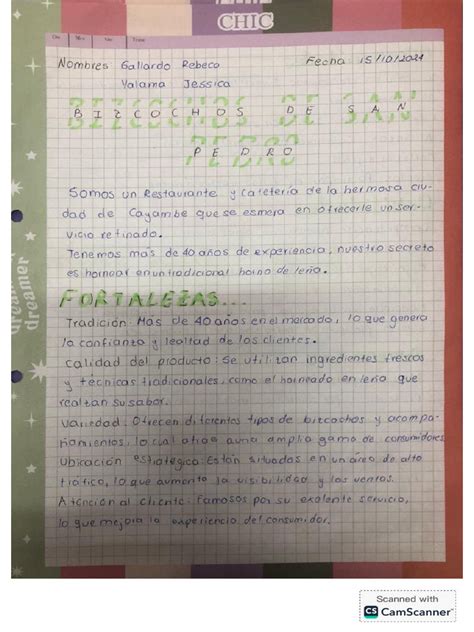 CHIC
Nombres Gallardo Rebeca
Fecha 15/10/2024
Valama Jessica
BIZCOCHOS DE SAN
PEDRO
Somos un Restaurante y Cafetería de la hermosa ciu-
dad de Cayambe que se esmera en ofrecerle un ser-
vicio refinado.
Tenemos más de 40 años de experiencia, nuestro secreto
es hornear en un tradicional horno de leña.
FORTALEZAS...
Tradición: Más de 40 años en el mercado, lo que genera
la confianza y lealtad de los clientes.
Calidad del producto: Se utilizan ingredientes frescos
y tecnicas tradicionales, como el horneado en leña que
realzan su sabor.
Variedad: Ofrecen diferentes tipos de bizcochos y acompa-
ñamientos, lo cual atrae a una amplia gama de consumidores
Ubicación estrategica: Están situados en un área de alto
tráfico, lo que aumenta la visibilidad y las ventas.
Atención al cliente: Famosos por su exelente servicio,
lo que mejora la experiencia del consumidor.
dreamer
Scanned with
CS CamScanner